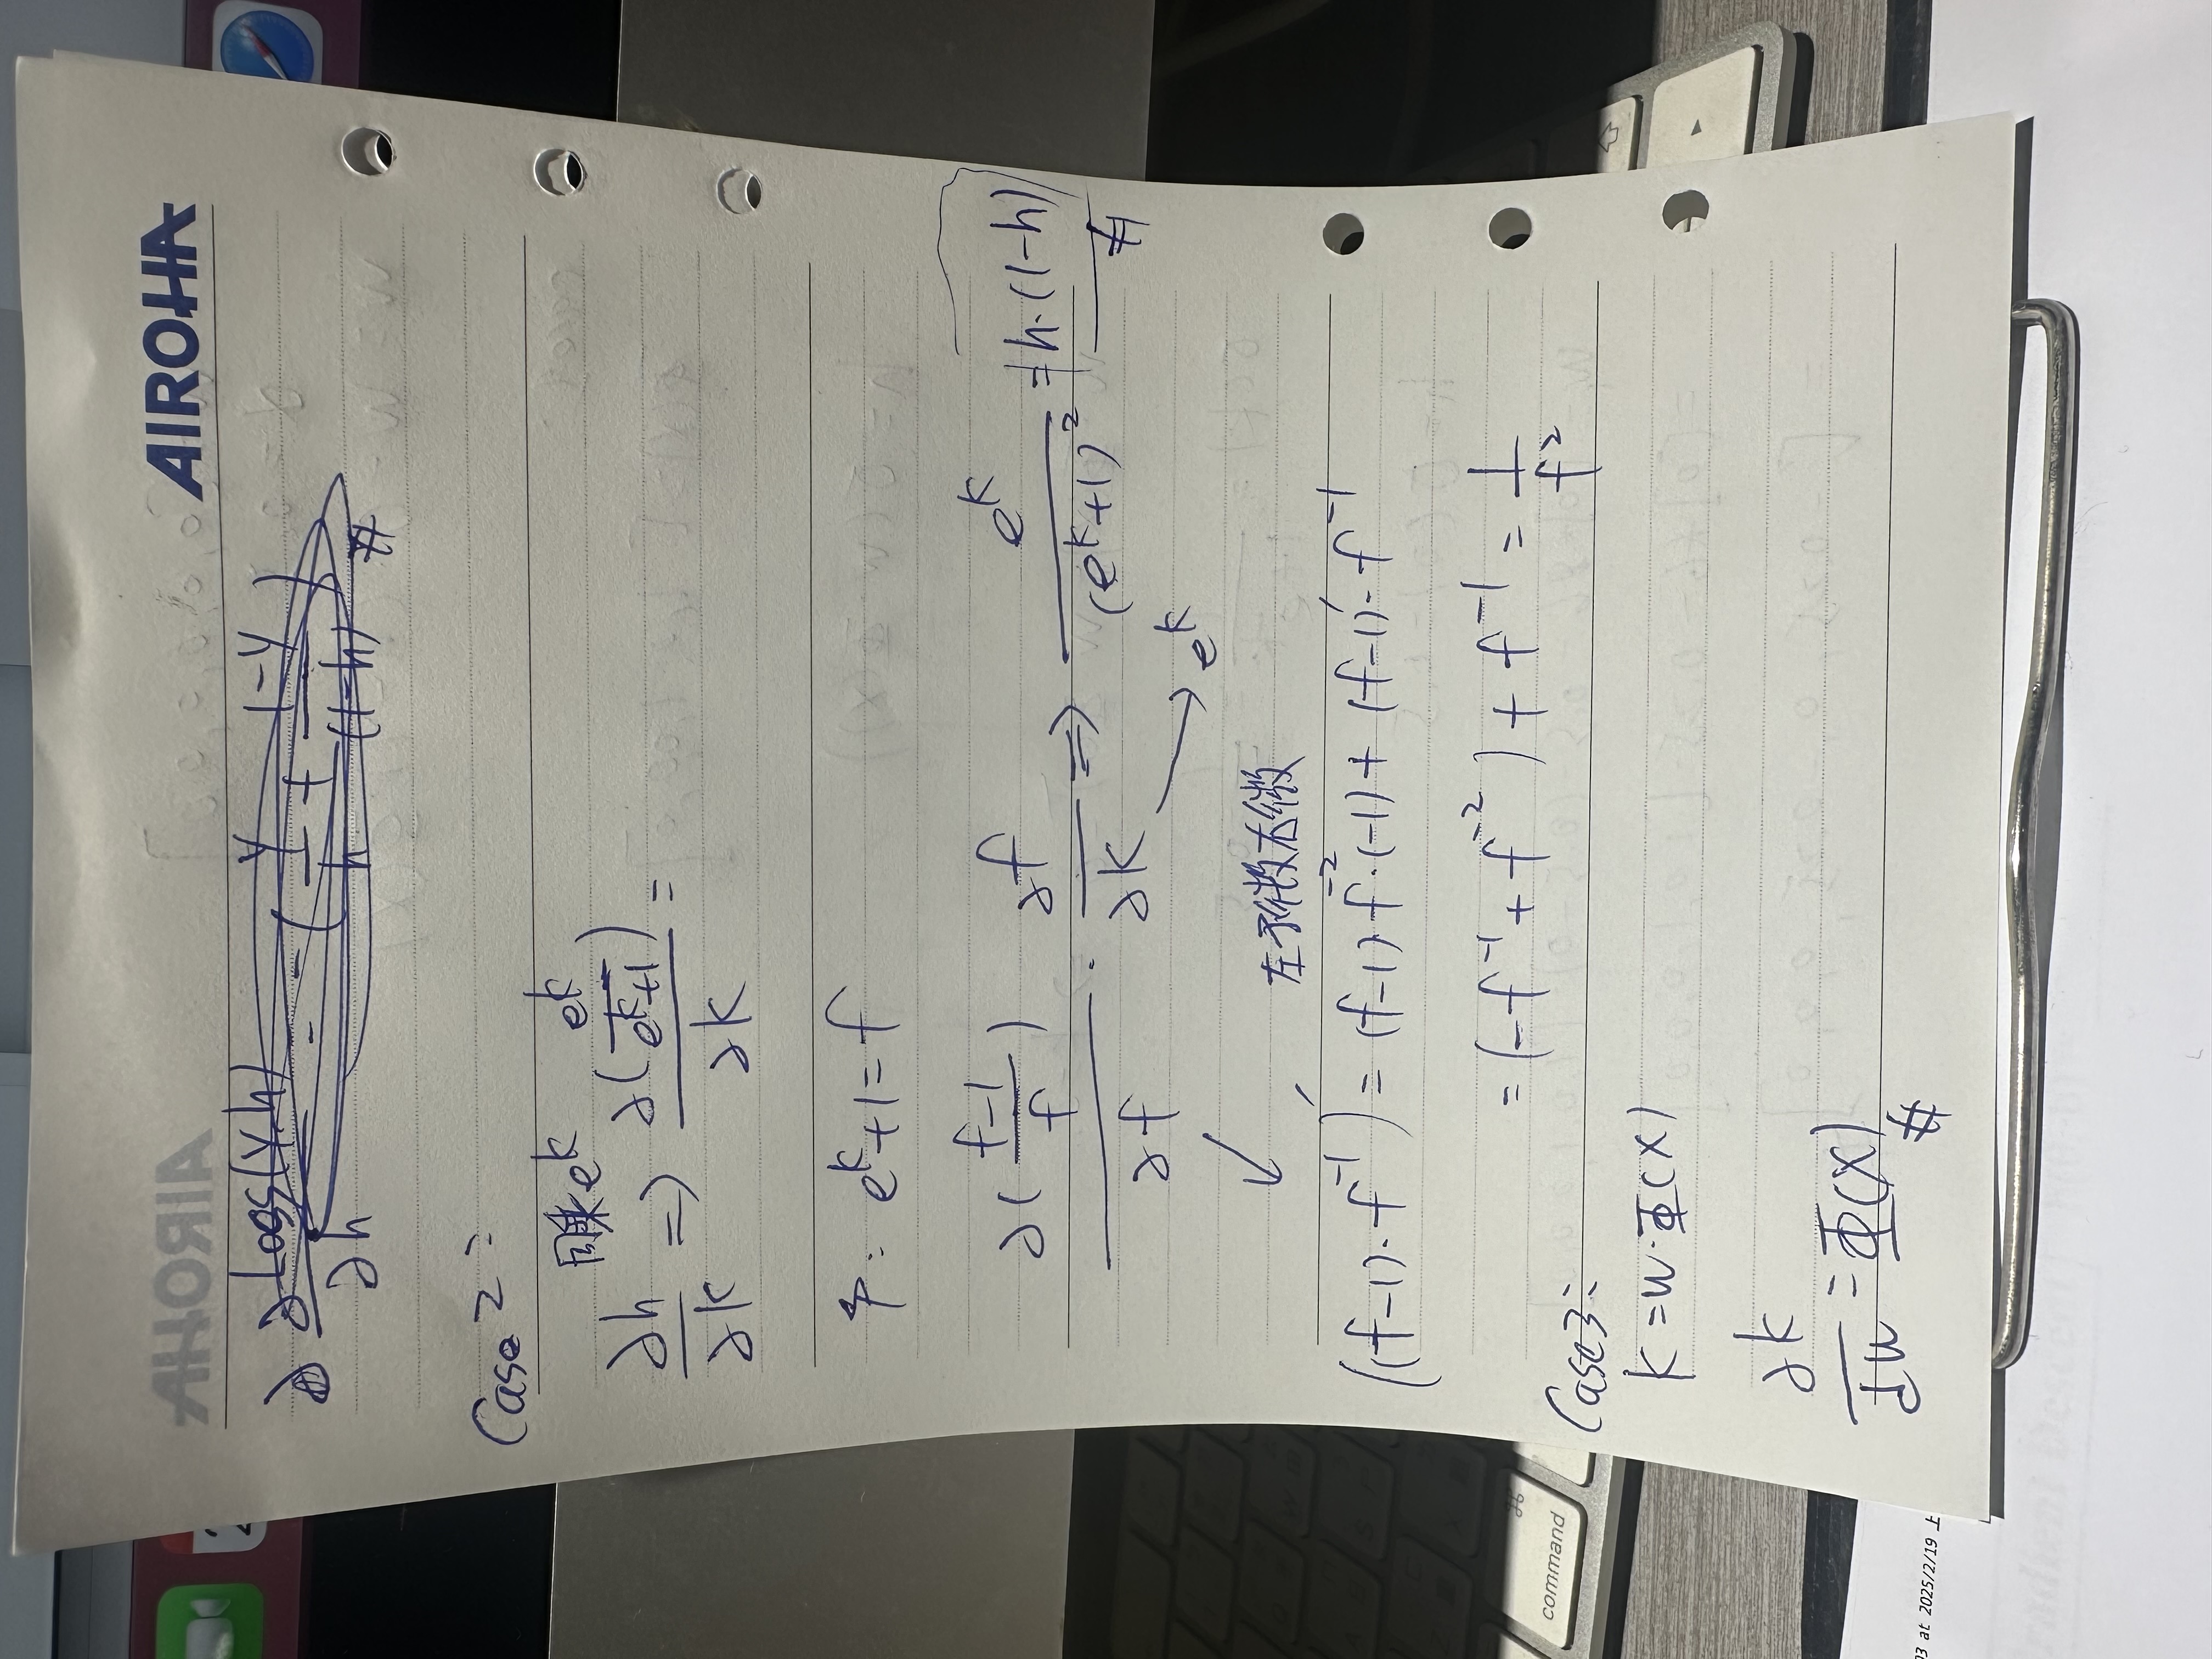 AIROHA
∂Loss(y,h)/∂h = -(y/h + (1-y)/(1-h)) #
Case 2:
同乘e^k
∂h/∂k => ∂(e^k/(e^k+1))/∂k =
令: e^k+1=f
∂((f-1)/f)/∂f · ∂f/∂k => e^k/(e^k+1)^2 = h·(1-h) #
e^k
左不微右微
((f-1)·f^-1)' = (f-1)·f^-2·(-1) + (f-1)'·f^-1
= (-f^-1 + f^-2) + f^-1 = 1/f^2
Case3:
k = w·Φ(x)
∂k/∂w = Φ(x) #
command
03 at 2025/2/19 上